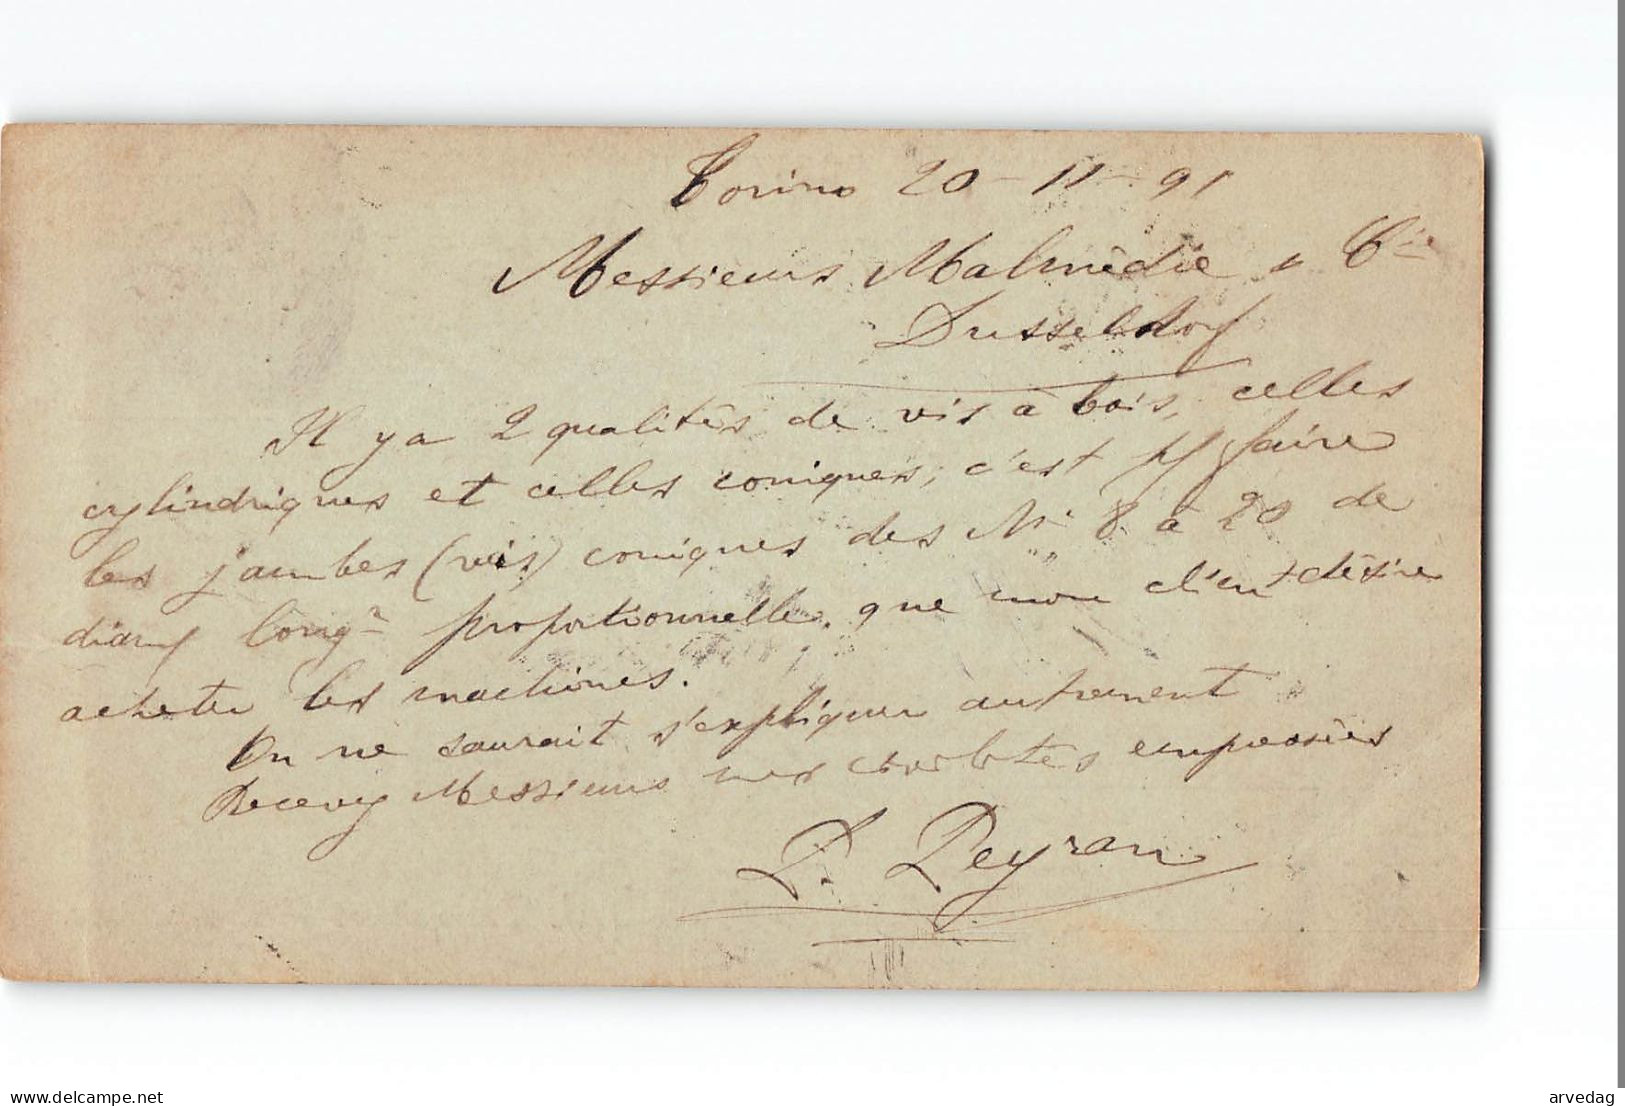 Torino 20 - 11 - 91
Messieurs Malmèdie & Cie
Dusseldorf
Il y a 2 qualitès de vis à bois, celles
cylindriques et celles coniques, c'est pr faire
les jambes (vis) coniques des Nos 8 à 20 de
diamf longr proportionnelle. que mon client dèsire
acheter les machines.
On ne saurait s'expliquer autrement
Recevez Messieurs mes empressès
P. Peyran
www.delcampe.net
arvedag